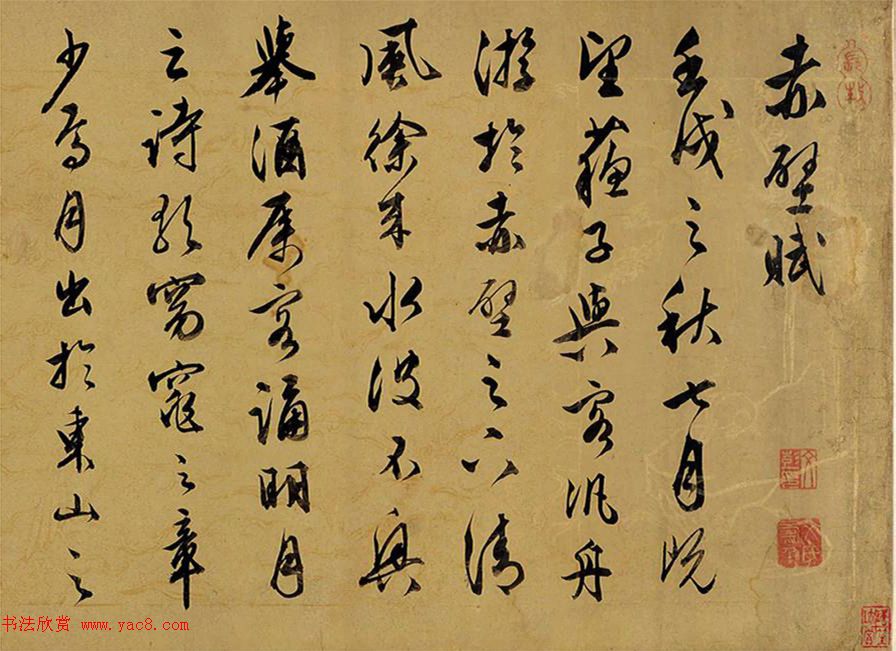 赤壁賦
壬戌之秋七月既
望蘇子與客汎舟
游於赤壁之下清
風徐來水波不興
舉酒屬客誦明月
之詩歌窈窕之章
少焉月出於東山之
书法欣赏 www.yac8.com